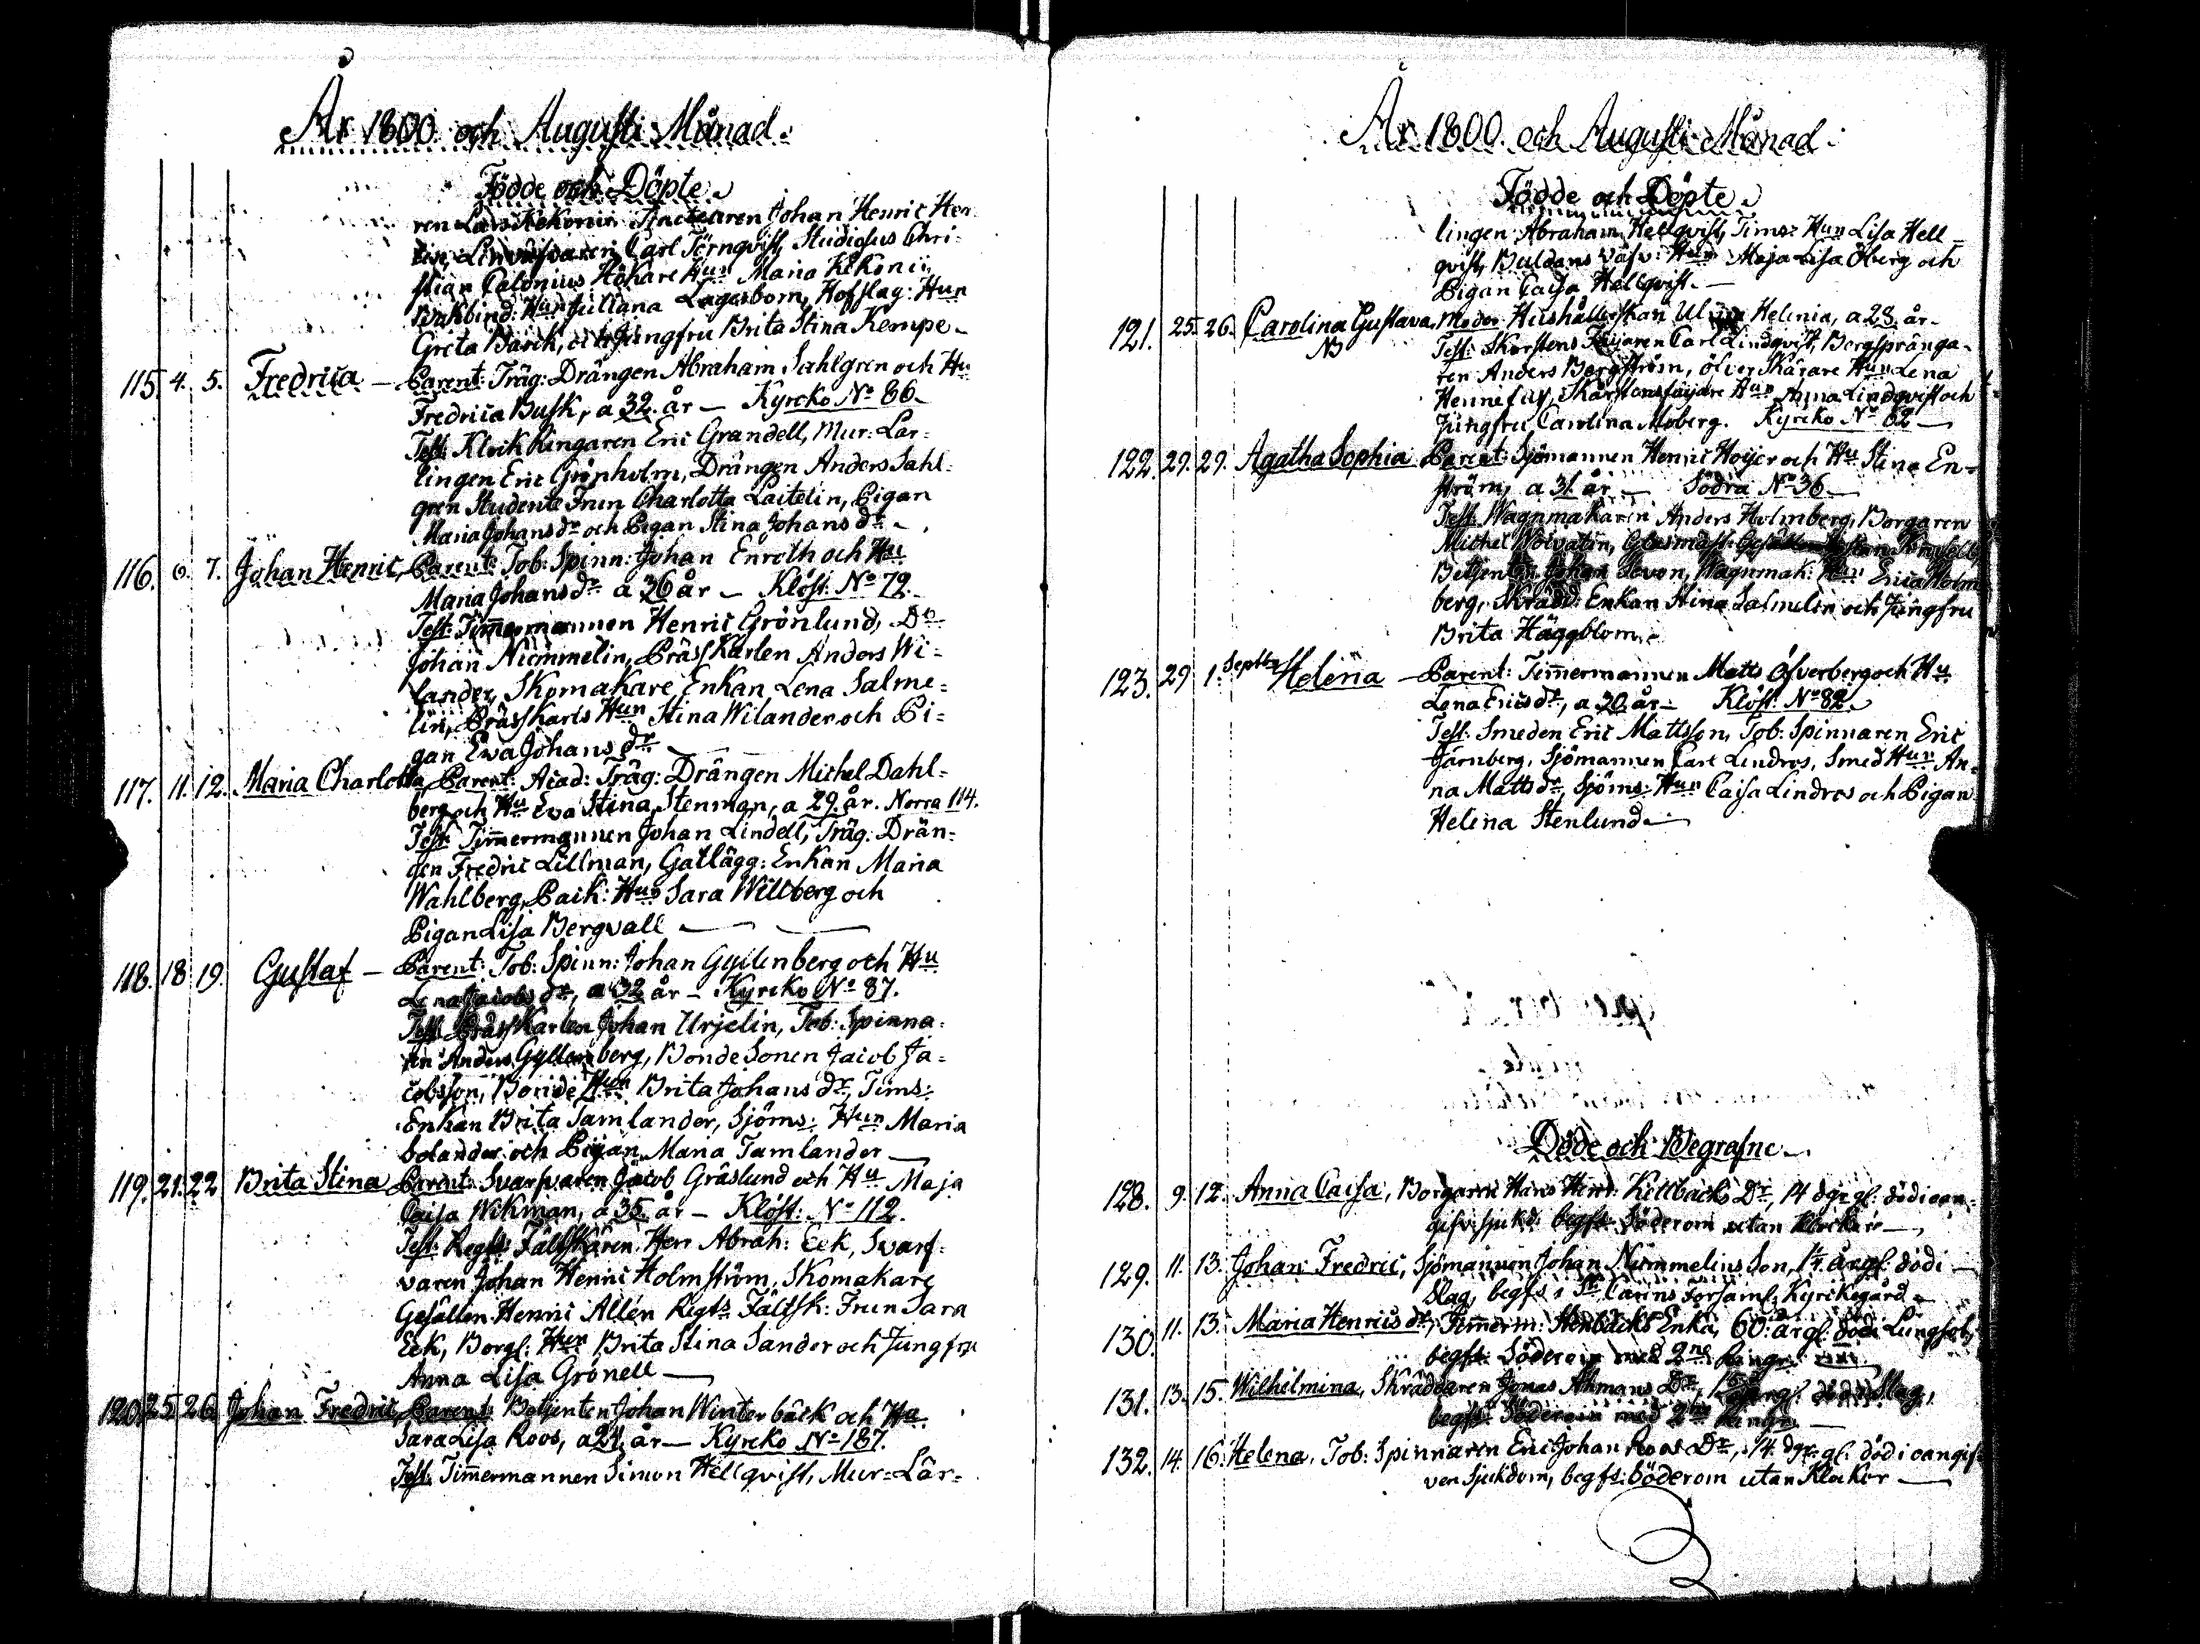 År 1800 och Augusti Månad.
Födde och Döpte.
ren Lars Kekonii Johan Henric Hen
Carl Törnqvist, Studiosus Chri-
stian Calonius. Hökare Hun Maria Kekonii,
Bokbind: Hun Juliana Lagerbom, Hofslag: Hun
Greta Barck, Jungfru Brita Stina Kempe.
115. 4. 5. Fredrica — Parent: Träg: Drängen Abraham Sahlgren och Hu
Fredrica Busk, a 32. år — Kyrcko No 86.
Test: Klockringaren Eric Grandell, Mur: Lär-
lingen Eric Grönholm, Drängen Anders Sahl-
gren Studente Frun Charlotta Laitelin, Pigan
Maria Johans dr och Pigan Stina Johans dr.
116. 6. 7. Johan Henric, Parent: Tob: Spinn: Johan Enroth och Hu
Maria Johans dr a 36 år — Klöst: No 72.
Test: Timmermannen Henric Grönlund, Do
Johan Nummelin, Bråss Karlen Anders Wi-
lander, Skomakare Enkan Lena Salme-
lin, Bråss Karls Hun Stina Wilander och Pi-
gan Ewa Johans dr.
117. 11. 12. Maria Charlotta, Parent: Acad: Träg: Drängen Michel Dahl-
berg och Hu Eva Stina Stenman, a 29 år. Norra 114.
Test: Timmermannen Johan Lindell, Träg: Drän-
gen Fredric Lillman, Gatlägg: Enkan Maria
Wahlberg, Packk: Hun Sara Willberg och
Pigan Lisa Bergvall —
118. 18. 19. Gustaf — Parent: Tob: Spinn: Johan Gyllenberg och Hu
Lena Jacobs dr, a 32 år — Kyrcko No 87.
Test: Bråss Karlen Johan Urjelin, Tob: Spinna-
ren Anders Gyllenberg, Bonde Sonen Jacob Ja-
cobsson, Bonde Hun Brita Johans dr, Tims:
Enkan Brita Tamlander, Sjöms: Hun Maria
Bolander och Pigan Maria Tamlander —
119. 21. 22 Brita Stina Parent: Svarfvaren Jacob Gräslund och Hu Maja
Caisa Wikman, a 35 år — Klöst: No 112.
Test: Regts Fältskären Herr Abrah: Eek, Svarf-
varen Johan Henric Holmström, Skomakare
Gesällen Henric Allén Regts Fältsk: Frun Sara
Eek, Borgl: Hun Brita Stina Sander och Jungfru
Anna Lisa Grönell —
120. 25 26 Johan Fredric, Parent: Betjenten Johan Winterbäck och Hu
Sara Lisa Roos, a 24 år — Kyrcko No 187.
Test: Timmermannen Simon Hellqvist, Mur-Lär-
År 1800. och Augusti Månad.
Födde och Döpte.
lingen Abraham Hellqvist, Tims: Hun Lisa Hell-
qvist, Buldans Väfv: Hun Maja Lisa Öberg och
Pigan Caisa Hellqvist. —
121. 25. 26. Carolina Gustava, Moder Hushållerskan Ulrica Helenia, a 28. år.
NB Test: Skorstens Fejaren Carl Lindqvist, Bergspränga-
ren Anders Bergström, Skärare Hun Lena
Skårstensfejare Hun Anna Lindqvist och
Jungfru Carolina Moberg. Kyrcko No 62 —
122. 29. 29. Agatha Sophia Parent: Sjömannen Henric Hoijer och Hu Stina En-
ström, a 31. år — Södra No 36 —
Test: Wagnmakaren Anders Holmberg, Borgaren
Michel
Betjenten Johan Levon, Wagnmak: Hun Erica Holm
berg, Skrädd: Enkan Stina Salmelin och Jungfru
Brita Häggblom.
123. 29 1. Septbr Helena — Parent: Timmermannen Matts Öfverberg och Hu
Lena Erics dr, a 30 år — Klöst: No 82.
Test: Smeden Eric Mattsson, Tob: Spinnaren Eric
Järnberg, Sjömannen Carl Lindros, Smed Hun An-
na Matts dr, Sjöms: Hun Caisa Lindros och Pigan
Helena Stenlund.
Döde och Begrafne.
128. 9. 12. Anna Caisa, Borgaren Hans Henr: Kellbäcks Dr, 14 dgr gl: död i oan-
gifv: sjukd: begfs Söderom utan Klockor —
129. 11. 13. Johan Fredric, Sjömannen Johan Nummelins Son, 1¼ år gl: död i
Slag, begfs i St Carins Församl: Kyrckogård.
130. 11. 13. Maria Henrics dr, Timmerm: Enka, 60: år gl: död i Lungsot,
begfs: Söderom med 2ne Ringr:
131. 13. 15. Wilhelmina, Skräddaren Jonas Åhmans Dr, död i Slag,
begfs: Söderom med 2ne Ringr: —
132. 14. 16. Helena, Tob: Spinnaren Eric Johan Roos Dr, 14 dgr gl: död i oangif-
ven Sjukdom, begfs: Söderom utan Klockor —